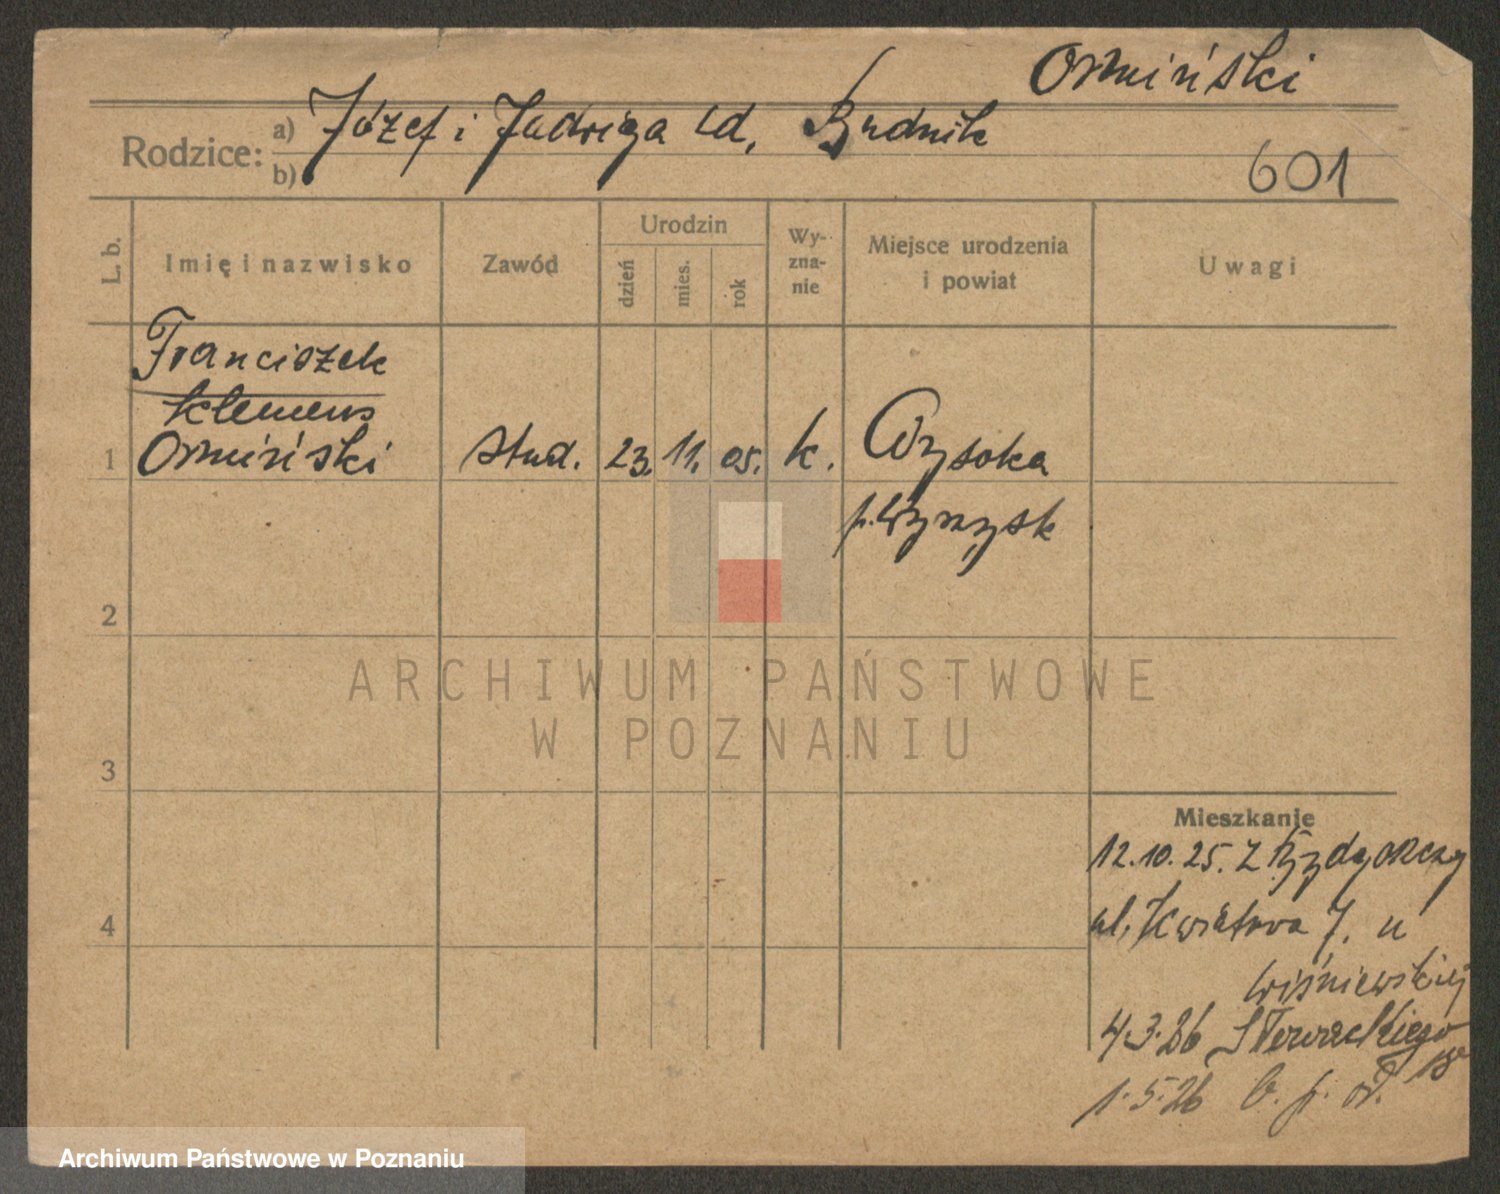 Ormiński
Rodzice:
a) Józef i Jadwiga zd. Budnik
b)
601
L. b.
Imię i nazwisko
Zawód
Urodzin
dzień
mies.
rok
Wy-
zna-
nie
Miejsce urodzenia
i powiat
Uwagi
Franciszek
Klemens
1 Ormiński stud. 23. 11. 05. k. Wysoka
p. Wyrzysk
2
3
4
ARCHIWUM PAŃSTWOWE
W POZNANIU
Mieszkanie
12.10.25. z Bydgoszczy
ul. Kwiatowa 7. u
Wiśniewskiej
4.3.26 Słowackiego
18
1.5.26
Archiwum Państwowe w Poznaniu